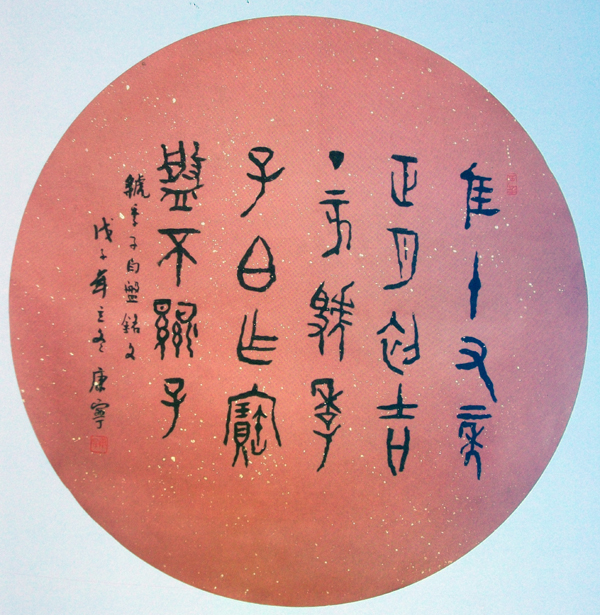 隹十又二年
正月初吉
丁亥虢季
子白乍寶
盤不顯子
虢季子白盤銘文
戊子年立冬康寧